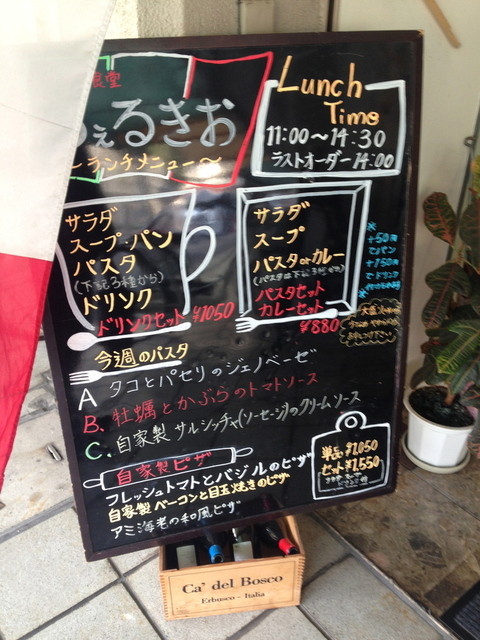 食堂
ぇるさお
～ランチメニュー～
Lunch
Time
11:00～14:30
ラストオーダー14:00
サラダ
スープ・パン
パスタ
(下記3種から)
ドリンク
ドリンクセット ¥1050
サラダ
スープ
パスタorカレー
(パスタは下記3種から)
パスタセット
カレーセット
¥880
※
+50円
でパン
+150円
でドリンク
今週のパスタ
A タコとパセリのジェノベーゼ
B. 牡蠣とかぶらのトマトソース
C. 自家製サルシッチャ(ソーセージ)のクリームソース
自家製ピザ
フレッシュトマトとバジルのピザ
自家製ベーコンと目玉焼きのピザ
アミ海老の和風ピザ
単品 ¥1,050
セット ¥1,550
Ca' del Bosco
Erbusco - Italia